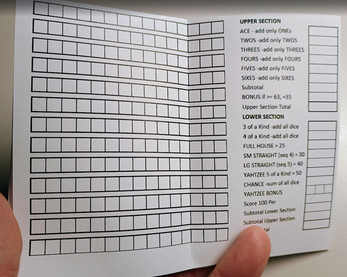 UPPER SECTION
ACE - add only ONEs
TWOS -add only TWOS
THREES -add only THREES
FOURS -add only FOURS
FIVES -add only FIVES
SIXES -add only SIXES
Subtotal
BONUS if >= 63, +35
Upper Section Total
LOWER SECTION
3 of a Kind -add all dice
4 of a Kind -add all dice
FULL HOUSE = 25
SM STRAIGHT (seq 4) = 30
LG STRAIGHT (seq 5) = 40
YAHTZEE 5 of a Kind = 50
CHANCE -sum of all dice
YAHTZEE BONUS
Score 100 Per
Subtotal Lower Section
Subtotal Upper Section